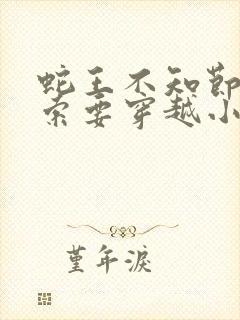 蛇王不知节
索要穿越小
堇年淚